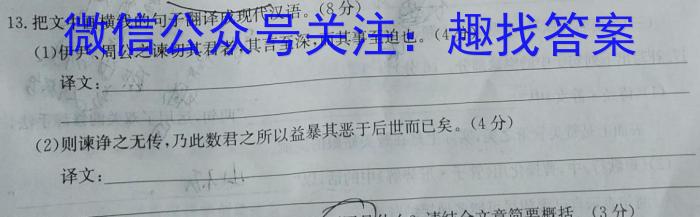 13.把文中画横线的句子翻译成现代汉语。(8分)
微信公众号关注：趣找答案
(1)伊尹、周公之谏切其君者,其言至深,而其事至迫也。(4分)
译文：
(2)则谏诤之无传,乃此数君之所以益暴其恶于后世而已矣。(4分)
译文：
请结合文章简要概括。(3分)